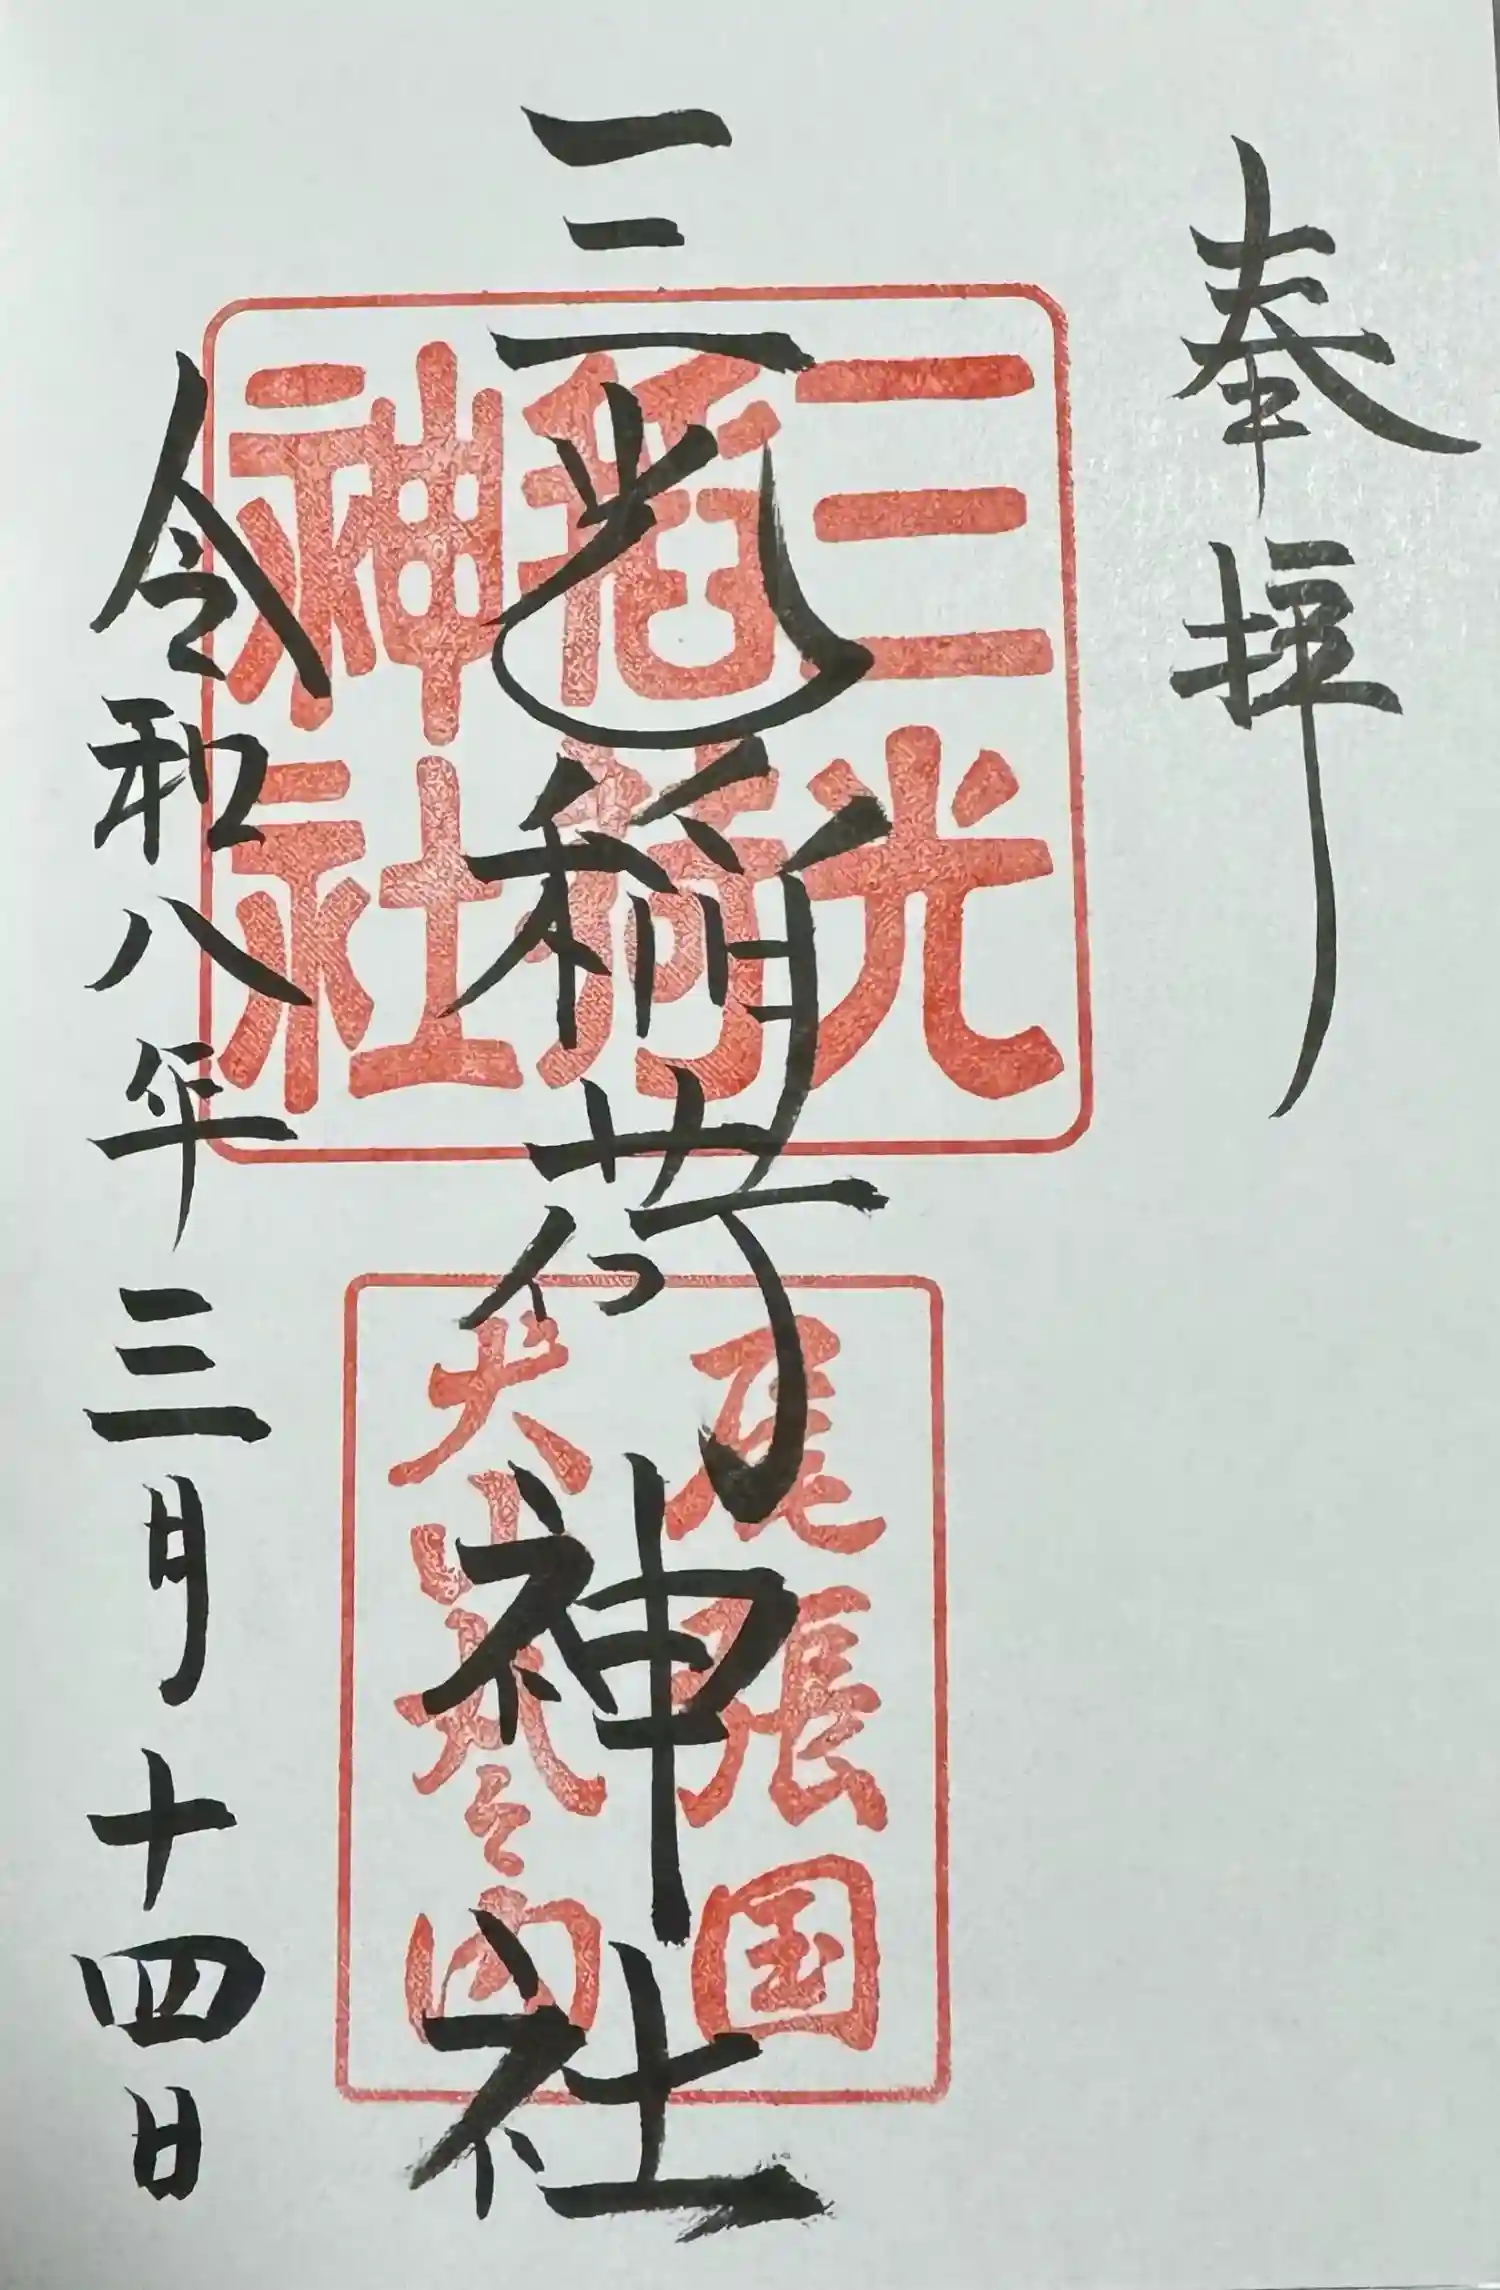 奉拝
三光稲荷神社
令和八年三月十四日
三光
稲荷
神社
尾張国
犬山丸之内